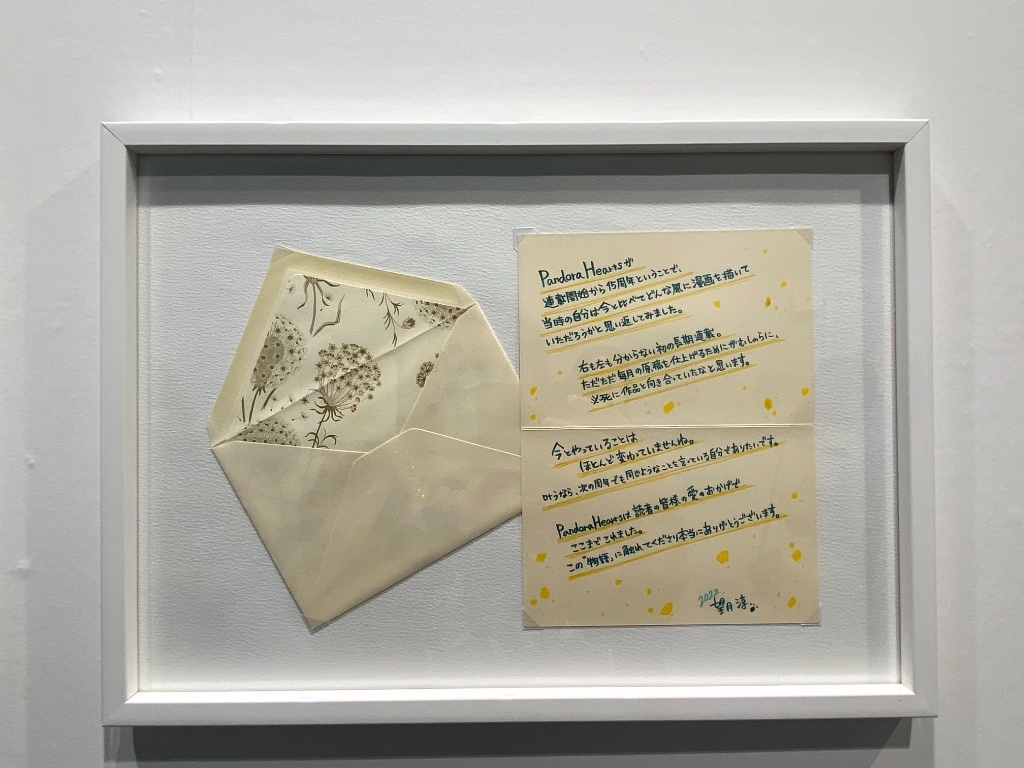 PandoraHeartsが
連載開始から15周年ということで、
当時の自分は今と比べてどんな風に漫画を描いて
いただろうかと思い返してみました。
右も左も分からない初の長期連載。
ただただ毎月の原稿を仕上げるためにがむしゃらに、
必死に作品と向き合っていたなと思います。
今とやっていることは
ほとんど変わっていませんね。
叶うなら、次の周年でも同じようなことを言っている自分でありたいです。
PandoraHeartsは読者の皆様の愛のおかげで
ここまでこれました。
この「物語」に触れてくださり本当にありがとうございます。
2022
望月淳